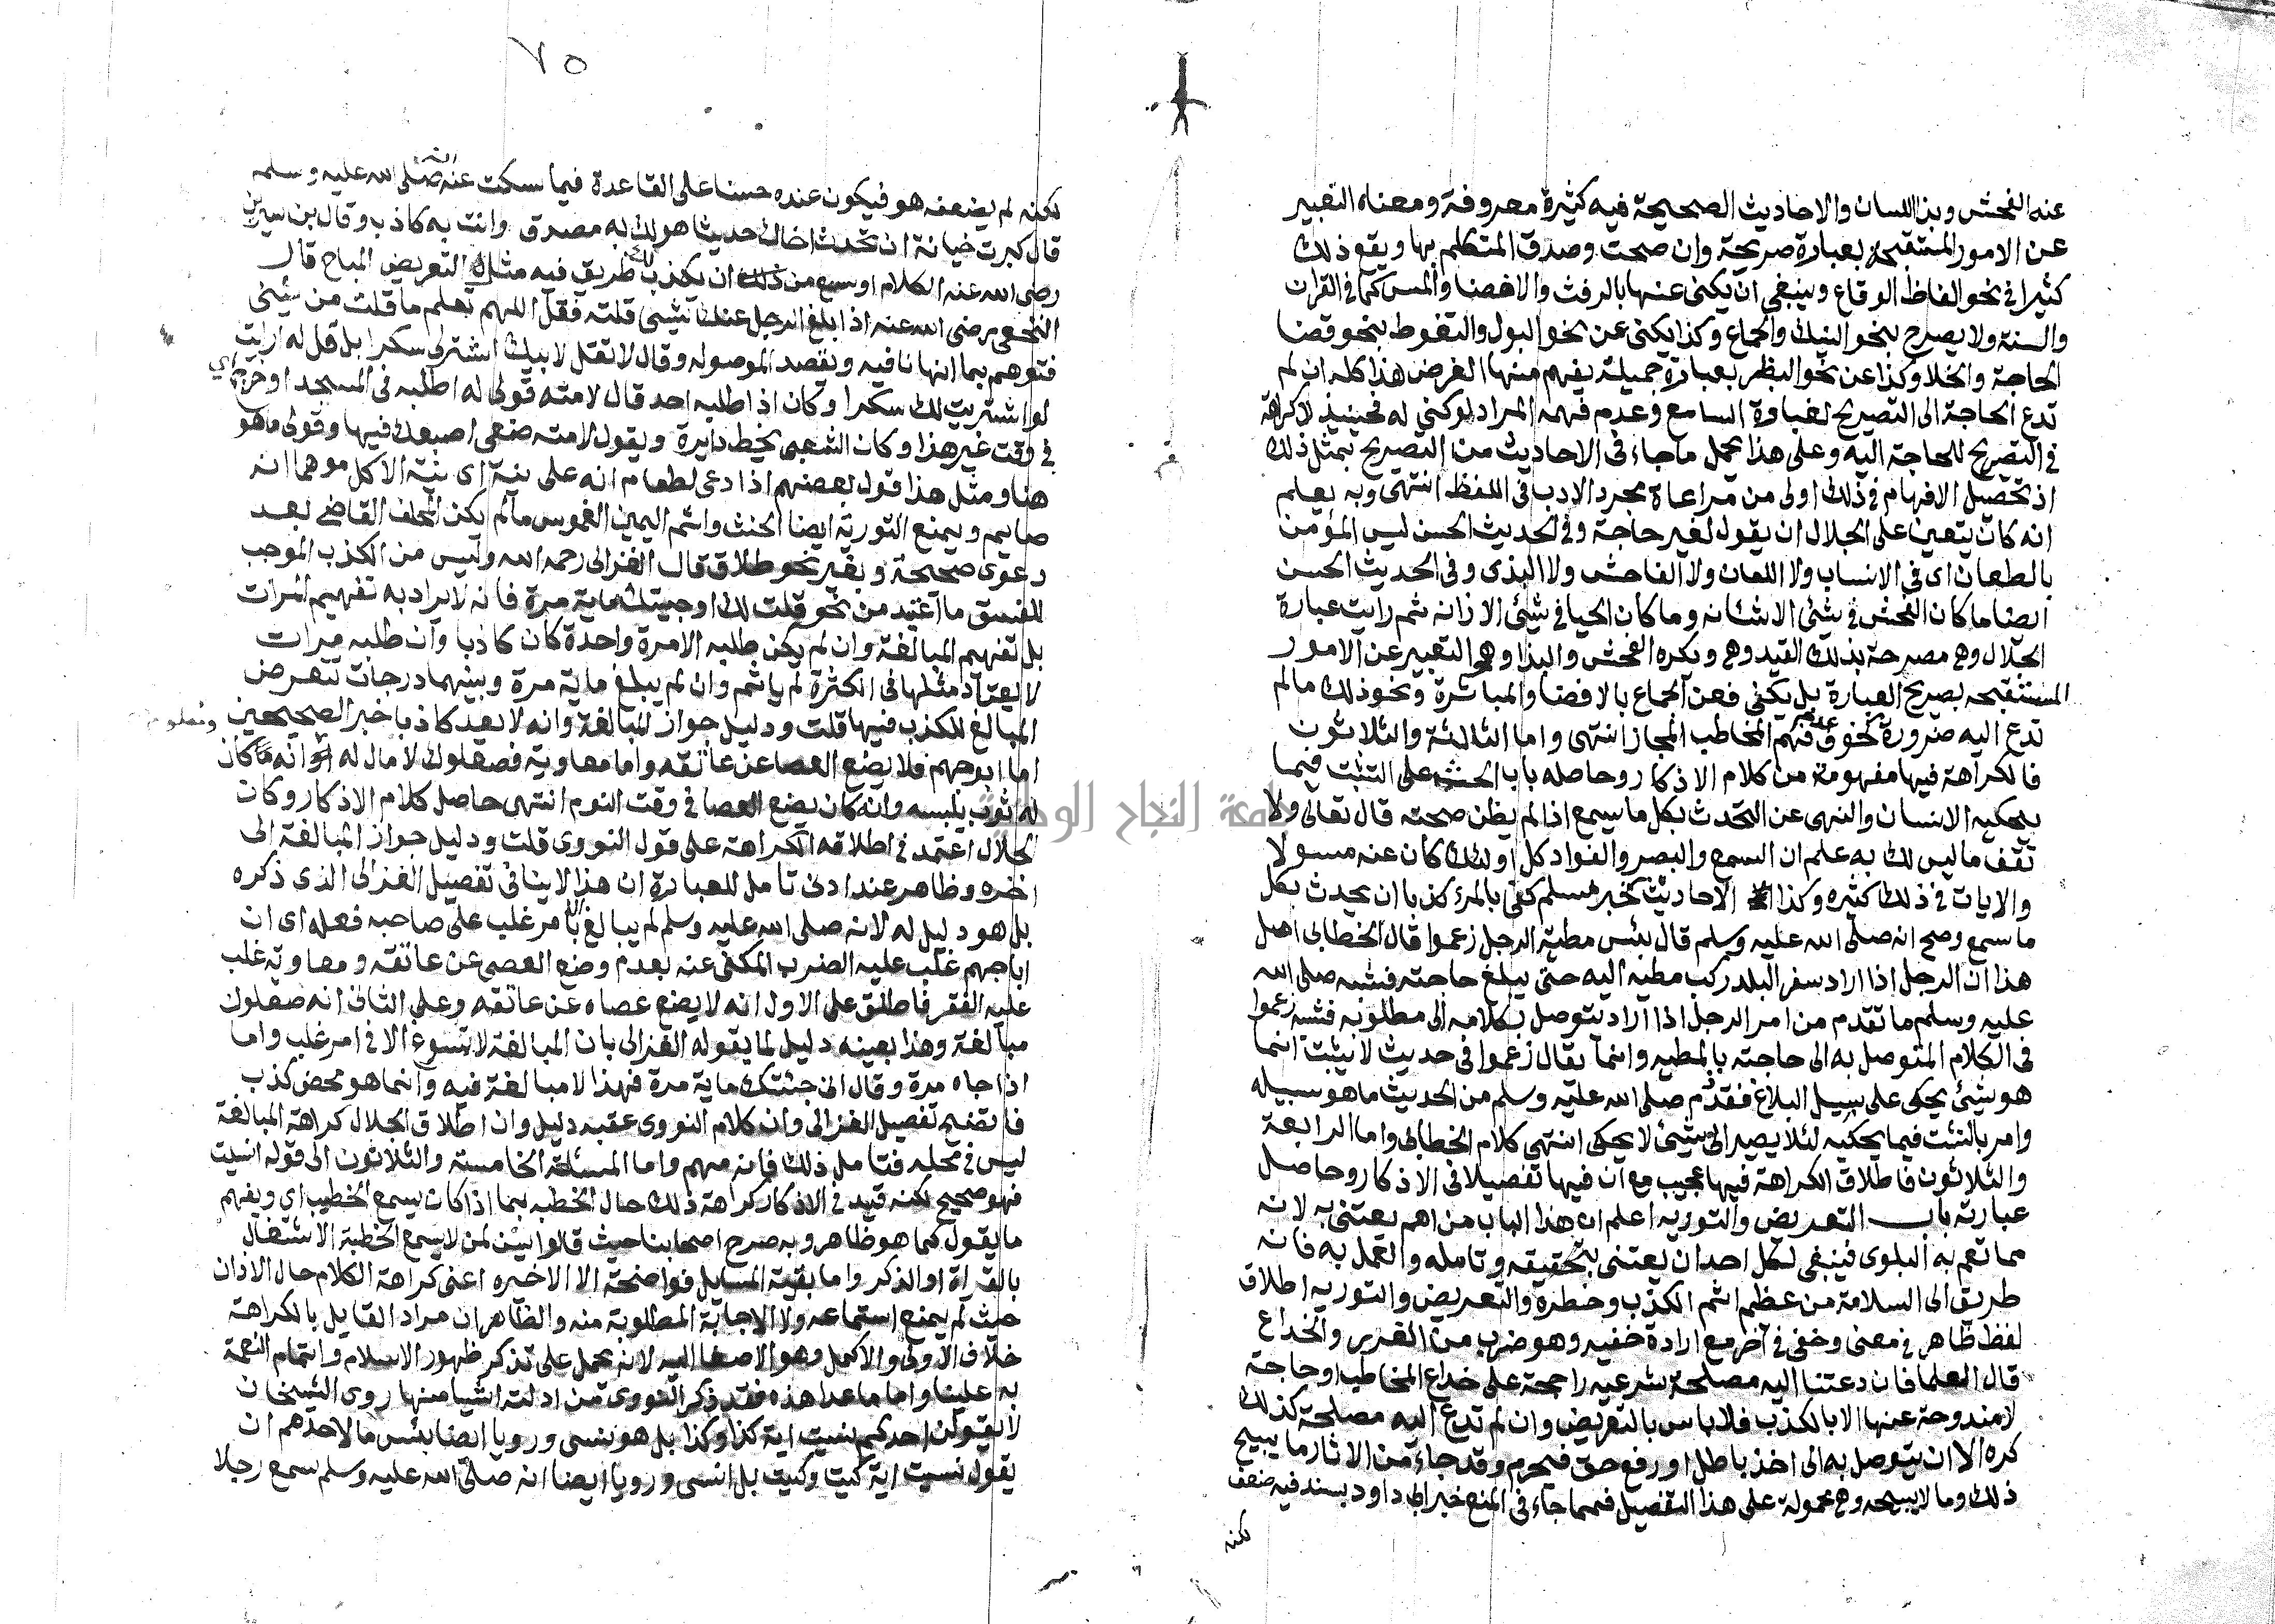 عنه الفحش وبذا اللسان والاحاديث الصحيحة فيه كثيرة معروفة ومعناه التعبير
عن الامور المستقبحة بعبارة صريحة وان صحت وصدق المتكلم بها ويقع ذلك
كثيرا في نحو الفاظ الوقاع وينبغي ان يكنى عنها بالرفث والافضا والمس كما في القران
والسنة ولا يصرح بنحو النيك والجماع وكذا يكنى عن نحو البول والتغوط بنحو قضا
الحاجة والخلا وكذا عن نحو البظر بعبارة جميلة يفهم منها الغرض هذا كله ان لم
تدع الحاجة الى التصريح لغباوة السامع وعدم فهمه المراد لو كني له فحينيذ لا كراهة
في التصريح للحاجة اليه وعلى هذا يحمل ما جاء في الاحاديث من التصريح بمثل ذلك
اذ تحصيل الافهام في ذلك اولى من مراعاة مجرد الادب في اللفظ انتهى وبه يعلم
انه كان يتعين على الجلال ان يقول لغير حاجة وفي الحديث الحسن ليس المؤمن
بالطعان اى في الانساب ولا اللعان ولا الفاحش ولا البذى وفي الحديث الحسن
ايضا ما كان الفحش في شئ الا شانه وما كان الحيا في شئ الا زانه ثم رايت عبارة
الجلال وهي مصرحة بذلك القيد وهي ويكره الفحش والبذا وهو التعبير عن الامور
المستقبحه بصريح العبارة بل يكنى فعن الجماع بالافضا والمباشرة ونحو ذلك ما لم
تدع اليه ضرورة كخوف عدم فهم المخاطب المجاز انتهى واما الثالثة والثلاثون
فالكراهة فيها مفهومة من كلام الاذكار وحاصله باب الحث على التثبت فيما
يحكيه الانسان والنهى عن التحدث بكل ما سمع اذا لم يظن صحته قال تعالى ولا
تقف ما ليس لك به علم ان السمع والبصر والفواد كل اولئك كان عنه مسولا
والايات في ذلك كثيره وكذا الاحاديث كخبر مسلم كفى بالمرء كذبا ان يحدث بكل
ما سمع وصح انه صلى الله عليه وسلم قال بئس مطية الرجل زعموا قال الخطابى اصل
هذا ان الرجل اذا اراد سفر البلد ركب مطيه اليه حتى يبلغ حاجته فشبه صلى الله
عليه وسلم ما تقدم من امر الرجل اذا اراد يتوصل بكلامه الى مطلوبه فشبه زعموا
في الكلام المتوصل به الى حاجته بالمطيه وانما يقال زعموا في حديث لا يثبت انما
هو شئ يحكى على سبيل البلاغ فقدم صلى الله عليه وسلم من الحديث ما هو سبيله
وامر بالتثبت فيما يحكيه لئلا يصير الى شئ لا يحكى انتهى كلام الخطابى واما الرابعة
والثلاثون فاطلاق الكراهة فيها عجيب مع ان فيها تفصيلا في الاذكار وحاصل
عبارته باب التعريض والتوريه اعلم ان هذا الباب من اهم يعتنى به لانه
مما تعم به البلوى فينبغى لكل احد ان يعتنى بتحقيقه وتامله والعمل به فانه
طريق الى السلامة من عظم اثم الكذب وخطره والتعريض والتوريه اطلاق
لفظ ظاهر في معنى وخفى في اخر مع ارادة خفيه وهو ضرب من الغرر والخداع
قال العلما فان دعتنا اليه مصلحة شرعيه راجحة على خداع المخاطب او حاجة
لا مندوحة عنها الا بالكذب فلا باس بالتعريض وان لم تدع اليه مصلحة كذلك
كره الا ان يتوصل به الى اخذ باطل او رفع حق فيحرم وقد جاء من الاثار ما يبيح
ذلك وما لا يبيحه وهي محمولة على هذا التفصيل فمما جاء في المنع خبر ابى داود بسند فيه ضعف
لكنه
٧٥
لكنه لم يضعفه هو فيكون عنده حسنا على القاعدة فيما سكت عنه انه صلى الله عليه وسلم
قال كبرت خيانة ان تحدث اخاك حديثا هو لك به مصدق وانت به كاذب وقال بن سيرين
رضى الله عنه الكلام اوسع من ان يكذب طريق فيه مثال التعريض المباح قال
النخعي رضى الله عنه اذا بلغ الرجل عنك شئ قلته فقل اللهم تعلم ما قلت من شئ
فتوهم بما انها نافيه وتقصد الموصوله وقال لا تقل لابيك اشتر لى سكرا بل قل له ارايت
لو اشتريت لك سكرا وكان اذا طلبه احد قال لامته قولى له اطلبه في المسجد او خرج اى
في وقت غير هذا وكان الشعبى يخط دايرة ويقول لامته ضعى اصبعك فيها وقولى ما هو
هنا ومثل هذا قول بعضهم اذا دعى لطعام انه على نية اى نية الاكل موهما انه
صايم ويمنع التورية ايضا الحنث واثم اليمين الغموس ما لم يكن المحلف القاضى بعد
دعوى صحيحة وبغير نحو طلاق قال الغزالى رحمه الله وليس من الكذب الموجب
للفسق ما اعتيد من نحو قلت لك او جيتك ماية مرة فانه لا يراد به تفهيم المرات
بل تفهيم المبالغة وان لم يكن طلبه الا مرة واحدة كان كاذبا وان طلبه مرات
لا يعتاد مثلها في الكثرة لم ياثم وان لم يبلغ ماية مرة وبينهما درجات تتعرض
المبالغ للكذب فيها قلت ودليل جواز المبالغة وانه لا يعد كاذبا خبر الصحيحين
اما ابو جهم فلا يضع العصا عن عاتقه واما معاوية فصعلوك لا مال له انه كان
له ثوب يلبسه وانه كان يضع العصا في وقت النوم انتهى حاصل كلام الاذكار وكان
الجلال اعتمد في اطلاقه الكراهة على قول النووى قلت ودليل جواز المبالغة الى
اخره وظاهر عند ادنى تامل للعبارة ان هذا لا ينافى تفصيل الغزالى الذى ذكره
بل هو دليل له لانه صلى الله عليه وسلم لم يبالغ الا بامر غلب على صاحبه فعله اى ان
ابا جهم غلب عليه الضرب المكنى عنه بعدم وضع العصى عن عاتقه ومعاوية غلب
عليه الفقر فاطلق على الاول انه لا يضع عصاه عن عاتقه وعلى الثانى انه صعلوك
مبالغة وهذا بعينه دليل لما يقوله الغزالى بان المبالغة لا تسوغ الا في امر غلب واما
اذا جاه مرة وقال انى جئتك ماية مرة فهذا لا مبالغة فيه وانما هو محض كذب
فاتضح تفصيل الغزالى وان كلام النووى عقبه دليل وان اطلاق الجلال كراهة المبالغة
ليس في محله فتامل ذلك فانه مهم واما المسئلة الخامسة والثلاثون الى قوله انسيت
فهو صحيح لكنه قيد في الاذكار كراهة ذلك حال الخطبه بما اذا كان يسمع الخطيب اى ويفهم
ما يقول كما هو ظاهر وبه صرح اصحابنا حيث قالوا يسن لمن لا يسمع الخطبة الاشتغال
بالقراة او الذكر واما بقية المسايل فواضحة الا الاخيره اعنى كراهة الكلام حال الاذان
حيث لم يمنع استماعه ولا الاجابة المطلوبة منه والظاهر ان مراد القايل بالكراهة
خلاف الاولى والاكمل وهو الاصغا اليه لانه يحمل على تذكر ظهور الاسلام واتمام النعمة
به علينا واما ما عدا هذه فقد ذكر النووى من ادلته اشيا منها روى الشيخان
لا يقولن احدكم نسيت اية كذا وكذا بل هو نسى ورويا ايضا بئس ما لاحدهم ان
يقول نسيت اية كيت وكيت بل انسى ورويا ايضا انه صلى الله عليه وسلم سمع رجلا
جامعة النجاح الوطنية